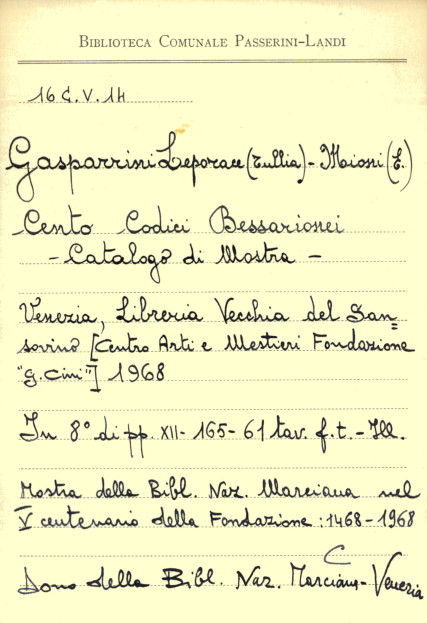 BIBLIOTECA COMUNALE PASSERINI-LANDI
16 C. V. 14
Gasparrini Leporace (Tullia) - Mioni (E.)
Cento Codici Bessarionei
- Catalogo di Mostra -
Venezia, Libreria Vecchia del San=
sovino [Centro Arti e Mestieri Fondazione
"G. Cini"] 1968
In 8° di pp. XII - 165 - 61 tav. f. t. - Ill.
Mostra della Bibl. Naz. Marciana nel
V centenario della Fondazione: 1468-1968
C
Dono della Bibl. Naz. Marciana - Venezia